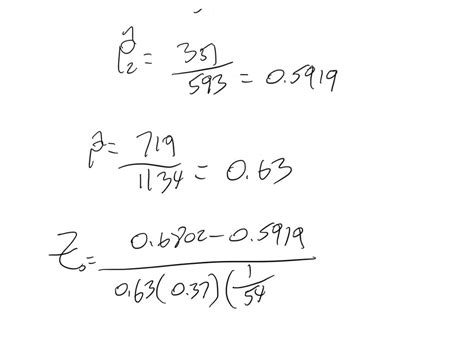 p̂₂ = 351/593 = 0.5919
p̂ = 719/1134 = 0.63
Z₀ = 0.6802 - 0.5919 / 0.63(0.37)(1/54